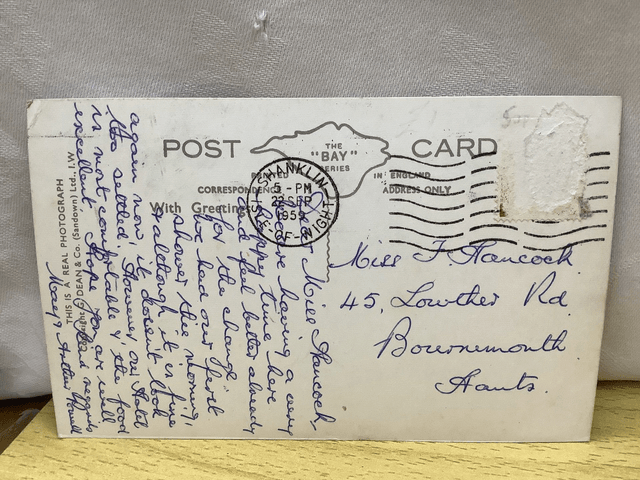 POST CARD
THE
"BAY"
SERIES
PRINTED IN ENGLAND
CORRESPONDENCE ADDRESS ONLY
With Greetings
SHANKLIN
5 - PM
SEP
ISLE OF WIGHT
THIS IS A REAL PHOTOGRAPH
DEAN & Co. (Sandown) Ltd., I.W.
Dear Miss Hancock,
We are having a very
happy time here
and feel better already
for the change.
We had our first
shower this morning,
& although it is fine
it doesn't look
too settled. However our Hotel
is most comfortable & the food
excellent. Hope you are well
again now.
Kind regards,
Miss F. Hancock.
45, Lowther Rd
Bournemouth
Hants.